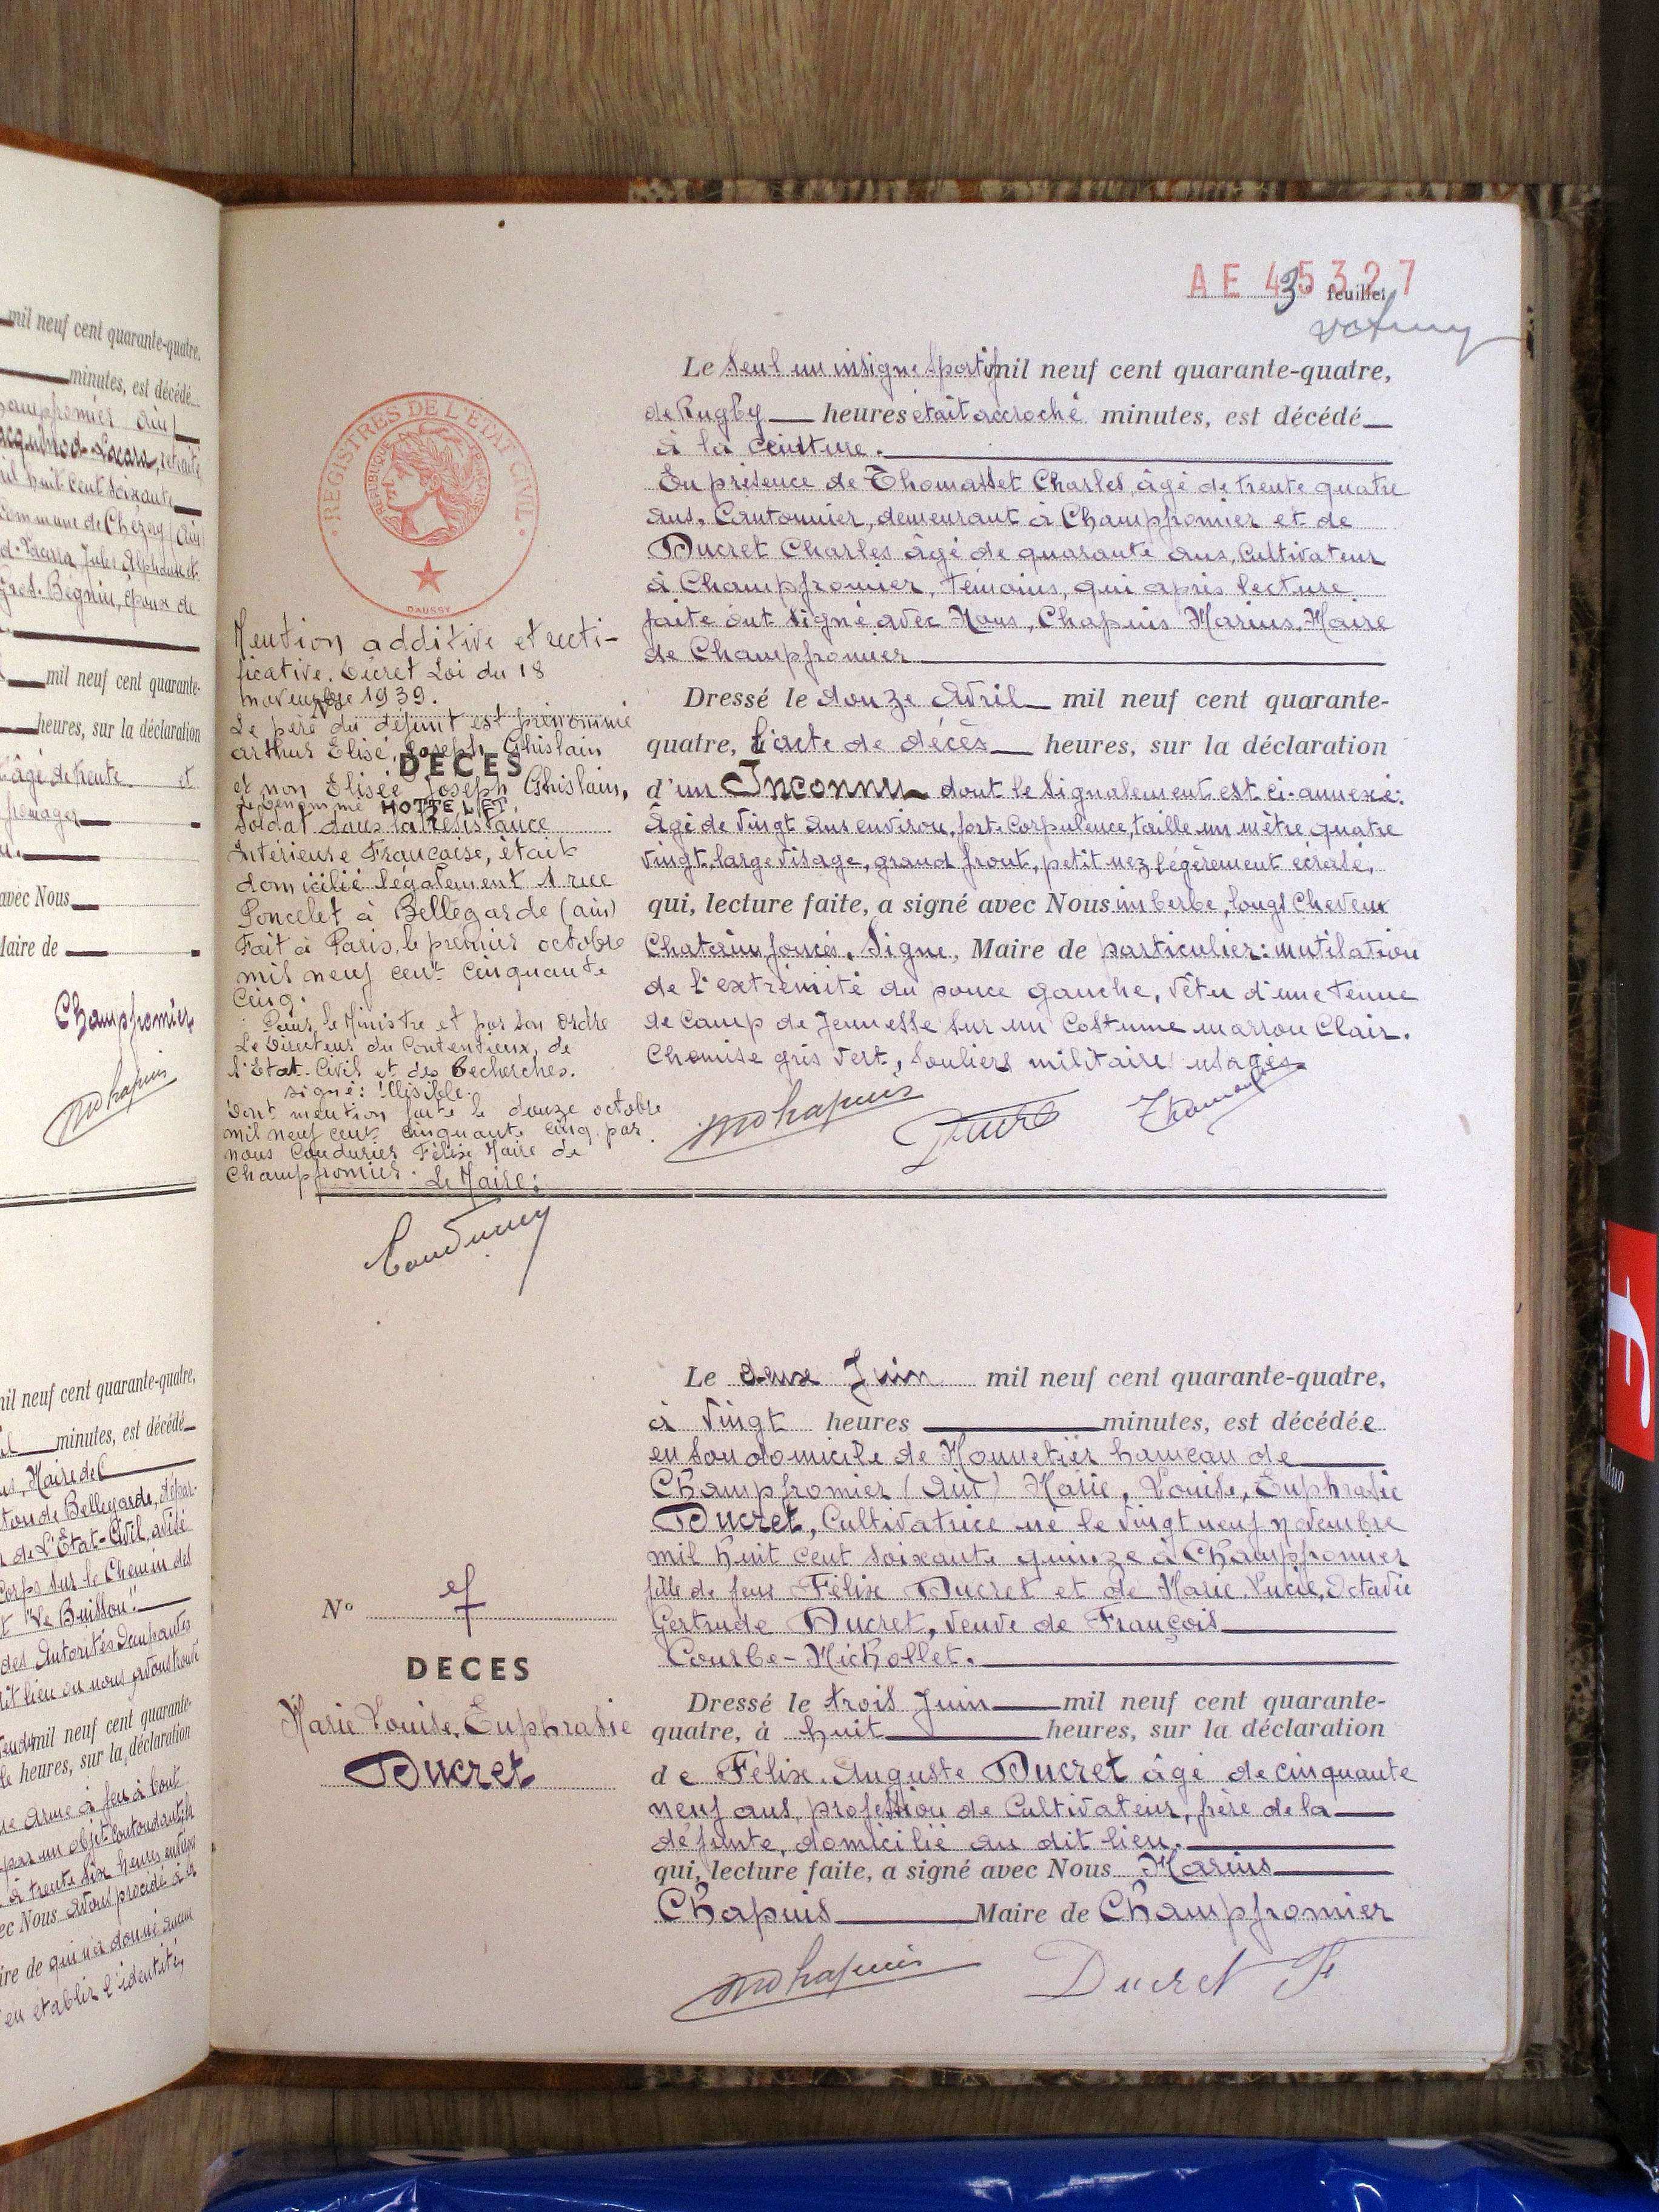 mil neuf cent quarante-quatre,
minutes, est décédé
mil neuf cent quarante-
heures, sur la déclaration
âgé de trente et
avec Nous
Maire de
Champfromier
MChapuis
mil neuf cent quarante-quatre,
minutes, est décédé
Maire de
ton de Bellegarde, dépar-
de L'Etat-Civil, avisé
Corps sur le Chemin des
"Le Buisson".
des Autorités Occupantes
dit lieu où nous avons trouvé
mil neuf cent quarante-
heures, sur la déclaration
une arme à feu à bout
par un objet contondant, la
à trente six heures environ
avec Nous avons procédé à la
Maire de qui n'a donné aucun
en établir l'identité,
AE 45327
3e feuillet
REGISTRES DE L'ETAT CIVIL
REPUBLIQUE FRANÇAISE
DAUSSY
Mention additive et recti-
ficative. Décret Loi du 18
novembre 1939.
Le père du défunt est prénommé
Arthur Elisé, Joseph Ghislain
DECES
et non Elisée Joseph Ghislain,
le dénommé HOTTELET,
Soldat dans la Résistance
Intérieure Française, était
domicilié légalement 1 rue
Poncelet à Bellegarde (ain)
Fait à Paris, le premier octobre
mil neuf cent cinquante
cinq.
Pour le Ministre et par son ordre
Le Directeur du Contentieux, de
l'Etat-Civil et des Recherches.
signé: illisible.
Dont mention faite le douze octobre
mil neuf cent cinquante cinq par
nous Coudurier Félix Maire de
Champfromier. Le Maire:
Le seul un insigne sportif mil neuf cent quarante-quatre,
de Rugby heures était accroché minutes, est décédé
à la ceinture.
En présence de Thomasset Charles, âgé de trente quatre
ans, Cantonnier, demeurant à Champfromier et de
Ducret Charles âgé de quarante ans, Cultivateur
à Champfromier, témoins, qui après lecture
faite ont signé avec Nous, Chapuis Marius, Maire
de Champfromier
Dressé le douze Avril mil neuf cent quarante-
quatre, l'acte de décès heures, sur la déclaration
d'un Inconnu dont le signalement est ci-annexé:
Âgé de vingt ans environ, forte corpulence, taille un mètre quatre
vingt, large visage, grand front, petit nez légèrement écrasé,
qui, lecture faite, a signé avec Nous imberbe, longs cheveux
Chatains foncés. Signe, Maire de particulier: mutilation
de l'extrémité du pouce gauche, vêtu d'une tenue
de camp de Jeunesse sur un costume marron clair.
Chemise gris vert, souliers militaire usagés.
MChapuis
Ducret
Thomasset
Le deux Juin mil neuf cent quarante-quatre,
à vingt heures minutes, est décédée
en son domicile de Monnetier hameau de
Champfromier (Ain) Marie, Louise, Euphrasie
Ducret, Cultivatrice né le vingt neuf novembre
mil huit cent soixante quinze à Champfromier
fille de feux Félix Ducret et de Marie, Lucie, Octavie
Gertrude Ducret, veuve de François
Courbe-Michollet.
No 7
DECES
Marie Louise, Euphrasie
Ducret
Dressé le trois Juin mil neuf cent quarante-
quatre, à huit heures, sur la déclaration
de Félix, Auguste Ducret âgé de cinquante
neuf ans, profession de Cultivateur, frère de la
défunte, domicilié au dit lieu.
qui, lecture faite, a signé avec Nous Marius
Chapuis Maire de Champfromier
MChapuis
Ducret F
duo